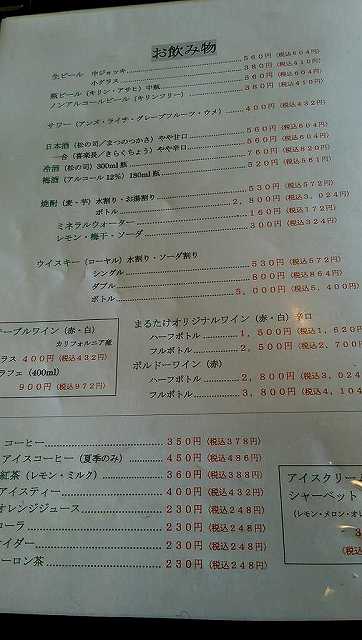 お飲み物
生ビール 中ジョッキ 560円(税込604円)
小グラス 380円(税込410円)
瓶ビール(キリン・アサヒ)中瓶 560円(税込604円)
ノンアルコールビール(キリンフリー) 380円(税込410円)
サワー(アンズ・ライチ・グレープフルーツ・ウメ) 400円(税込432円)
日本酒(松の司/まつのつかさ)やや甘口 560円(税込604円)
一合(喜楽長/きらくちょう)やや辛口 560円(税込604円)
冷酒(松の司)300ml瓶 760円(税込820円)
梅酒(アルコール12%)180ml瓶 520円(税込561円)
焼酎(麦・芋)水割り・お湯割り 530円(税込572円)
ボトル 2,800円(税込3,024円)
ミネラルウォーター 160円(税込172円)
レモン・梅干・ソーダ 300円(税込324円)
ウイスキー(ローヤル)水割り・ソーダ割り
シングル 530円(税込572円)
ダブル 800円(税込864円)
ボトル 5,000円(税込5,400円)
テーブルワイン(赤・白)
カリフォルニア産
ラス 400円(税込432円)
ラフェ(400ml)
900円(税込972円)
まるたけオリジナルワイン(赤・白)辛口
ハーフボトル 1,500円(税込1,620円
フルボトル 2,500円(税込2,700
ボルドーワイン(赤)
ハーフボトル 2,800円(税込3,024
フルボトル 3,800円(税込4,104
コーヒー 350円(税込378円)
アイスコーヒー(夏季のみ) 450円(税込486円)
紅茶(レモン・ミルク) 360円(税込388円)
アイスティー 400円(税込432円)
オレンジジュース 230円(税込248円)
コーラ 230円(税込248円)
サイダー 230円(税込248円)
ーロン茶 230円(税込248円)
アイスクリー
シャーベット
(レモン・メロン・オレ
3
(税込